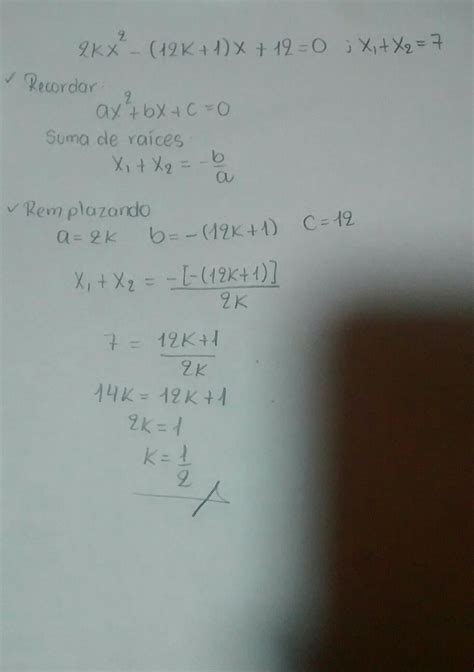 2kx² - (12k+1)x + 12 = 0 ; x₁+x₂ = 7
✓ Recordar:
ax²+bx+c=0
Suma de raíces:
x₁ + x₂ = -b/a
✓ Remplazando
a=2k b=-(12k+1) c=12
x₁+x₂ = -[-(12k+1)]/2k
7 = 12k+1/2k
14k = 12k+1
2k=1
k=1/2